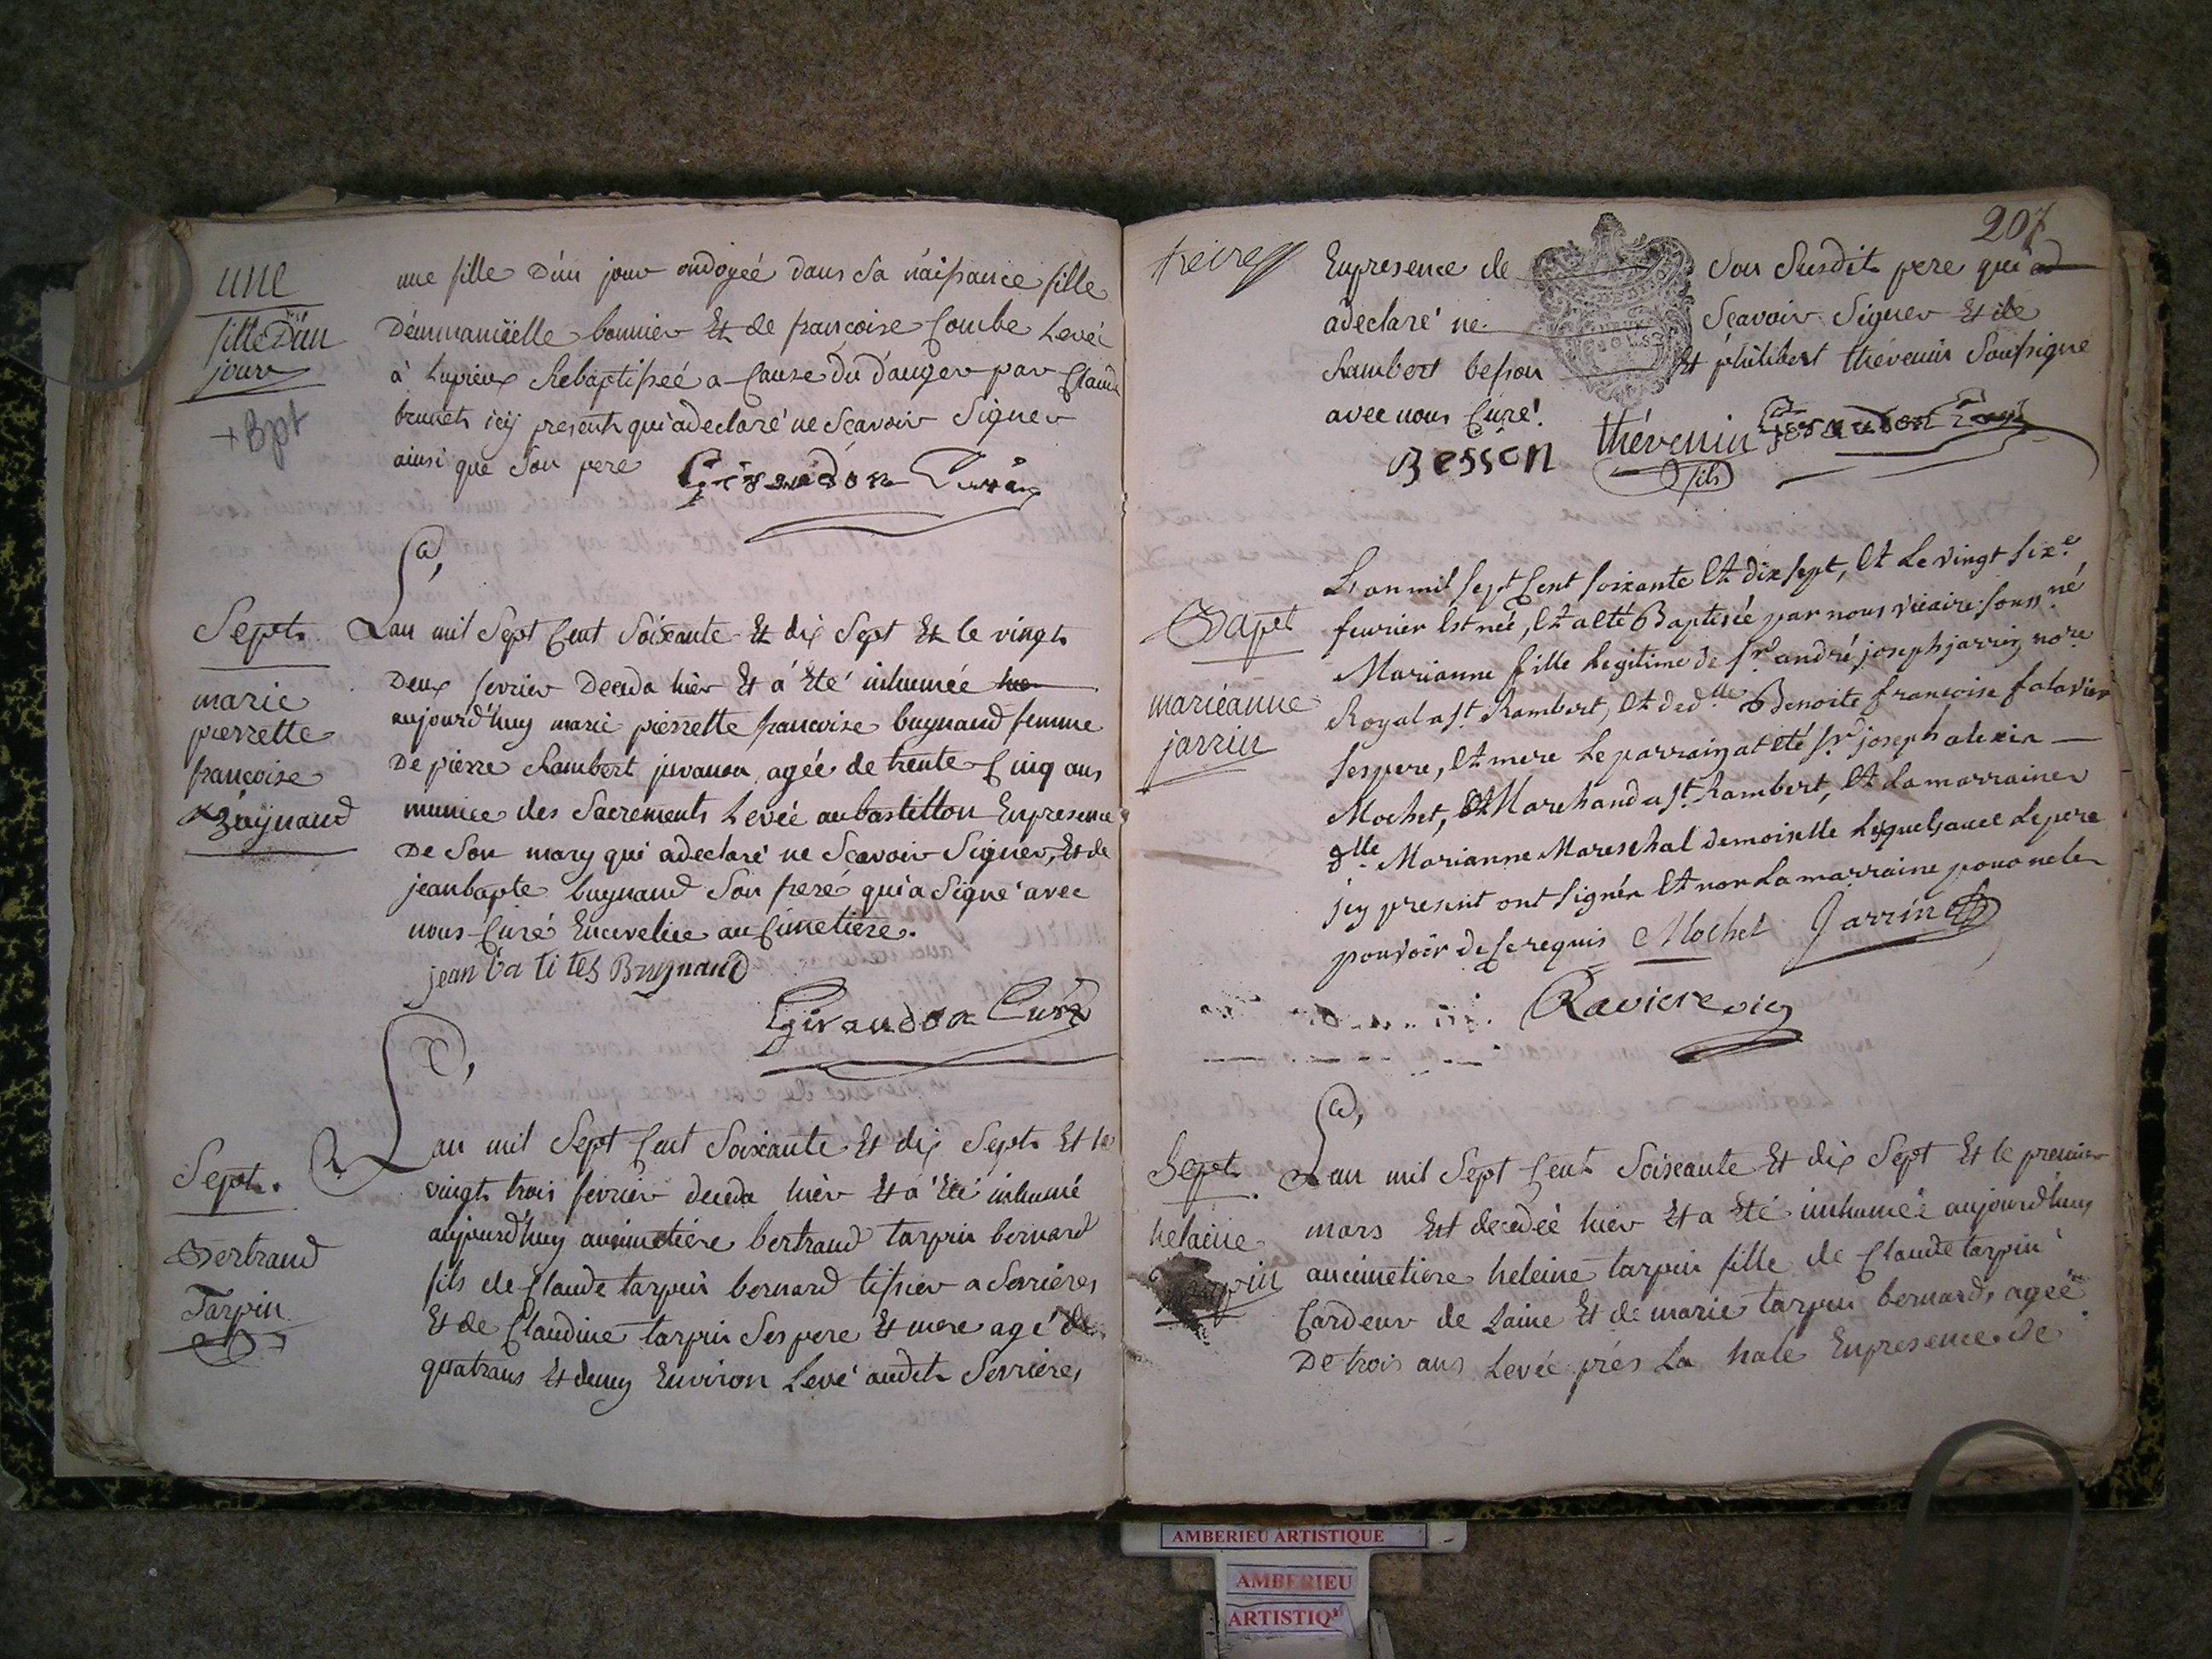 une
fille D'un
jour
+ Bpt
une fille D'un jour ondoyeé dans Sa naissance fille
D'emmanüelle bonnier Et de francoise Combe Leveé
à Lupieux Rebaptisseé a Cause du danger par Claude
brunet icÿ present qui a declaré ne Scavoir Signer
ainsi que Son pere Girandon Curé
Sept.
marie
pierrette
francoise
Bugnaud
Lan mil Sept Cent Soixante Et dix Sept Et le vingt
Deux fevrier Deceda hier Et a Eté inhumée
aujourd'huy marie pierrette francoise bugnaud femme
De pierre Lambert juvanon ageé de trente Cinq ans
munice des Sacrements Leveé au bastillon En presence
De Son mary qui a declaré ne Scavoir Signer, Et de
jean bapte bugnaud Son frere qui a Signé avec
nous Curé Encevelie au Cimetiere.
jean batites Bugnaud
Girandon Curé
Sept.
Bertrand
Tarpin
Lan mil Sept Cent Soixante Et dix Sept Et le
vingt trois fevrier deceda hier Et a Eté inhumé
aujourd'huy au cimetière bertrand tarpin bernard
fils de Claude tarpin bernard tissier a Serrières
Et de Claudine tarpin Ses pere Et mere agé de
quatrans Et demy Environ Levé audit Serrières
207
En presence de Son Susdit pere qui
a declaré ne Scavoir Signer Et de
Lambert besson Et philibert thévenin Soussigne
avec nous Curé.
Besson thévenin fils Girandon Curé
Bapt
marieanne
jarrin
L'an mil sept Cent soixante Et dix sept, Et Le vingt sixe
fevrier Est neé, Et a eté Baptisée par nous vicaire sousné
Marianne fille Legitime de sr andré joseph jarrin nore
Royal a st Rambert, Et de dlle Benoite francoise falavier
ses pere, Et mere Le parrain at eté sr joseph alexis
Mochet, Marchand a st Rambert, Et La marraine
dlle Marianne Mareschal demoiselle Lesquels avec Le pere
jcy present ont signés Et non La marraine pour ne le
pouvoir de Ce requis Mochet Jarrin
Raviere vic
Sept.
helaine
Lan mil Sept Cent Soixante Et dix Sept Et le premier
mars Est decedeé hier Et a Eté inhumeé aujourd'huy
au cimetiere heleine tarpin fille de Claude tarpin
Cardeur de Laine Et de marie tarpin bernard, ageé
De trois ans Levée prés La hale En presence de
AMBERIEU ARTISTIQUE
AMBERIEU
ARTISTIQ